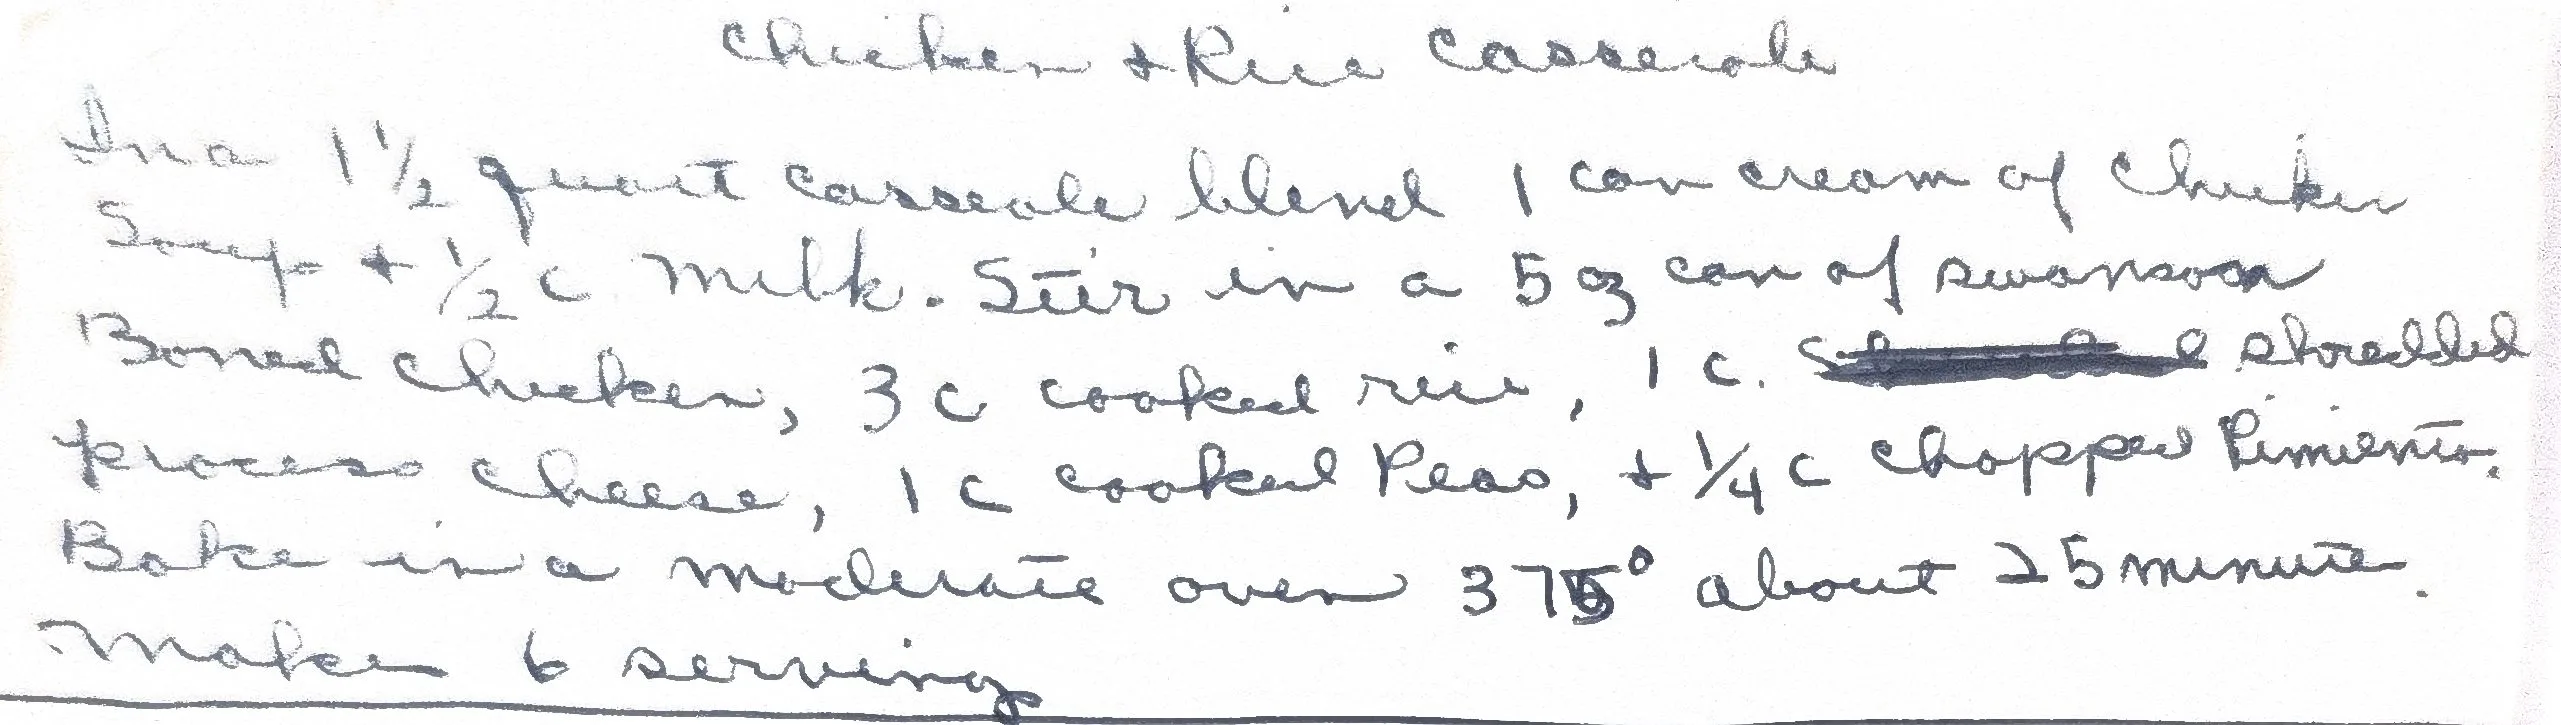 Chicken + Rice Casserole
In a 1 1/2 quart casserole blend 1 can cream of chicken
Soup + 1/2 c milk. Stir in a 5 oz can of swanson
Boned chicken, 3 c cooked rice, 1 c. shredded
process cheese, 1 c cooked Peas, + 1/4 c chopped Pimiento.
Bake in a moderate oven 375° about 25 minute.
Makes 6 servings